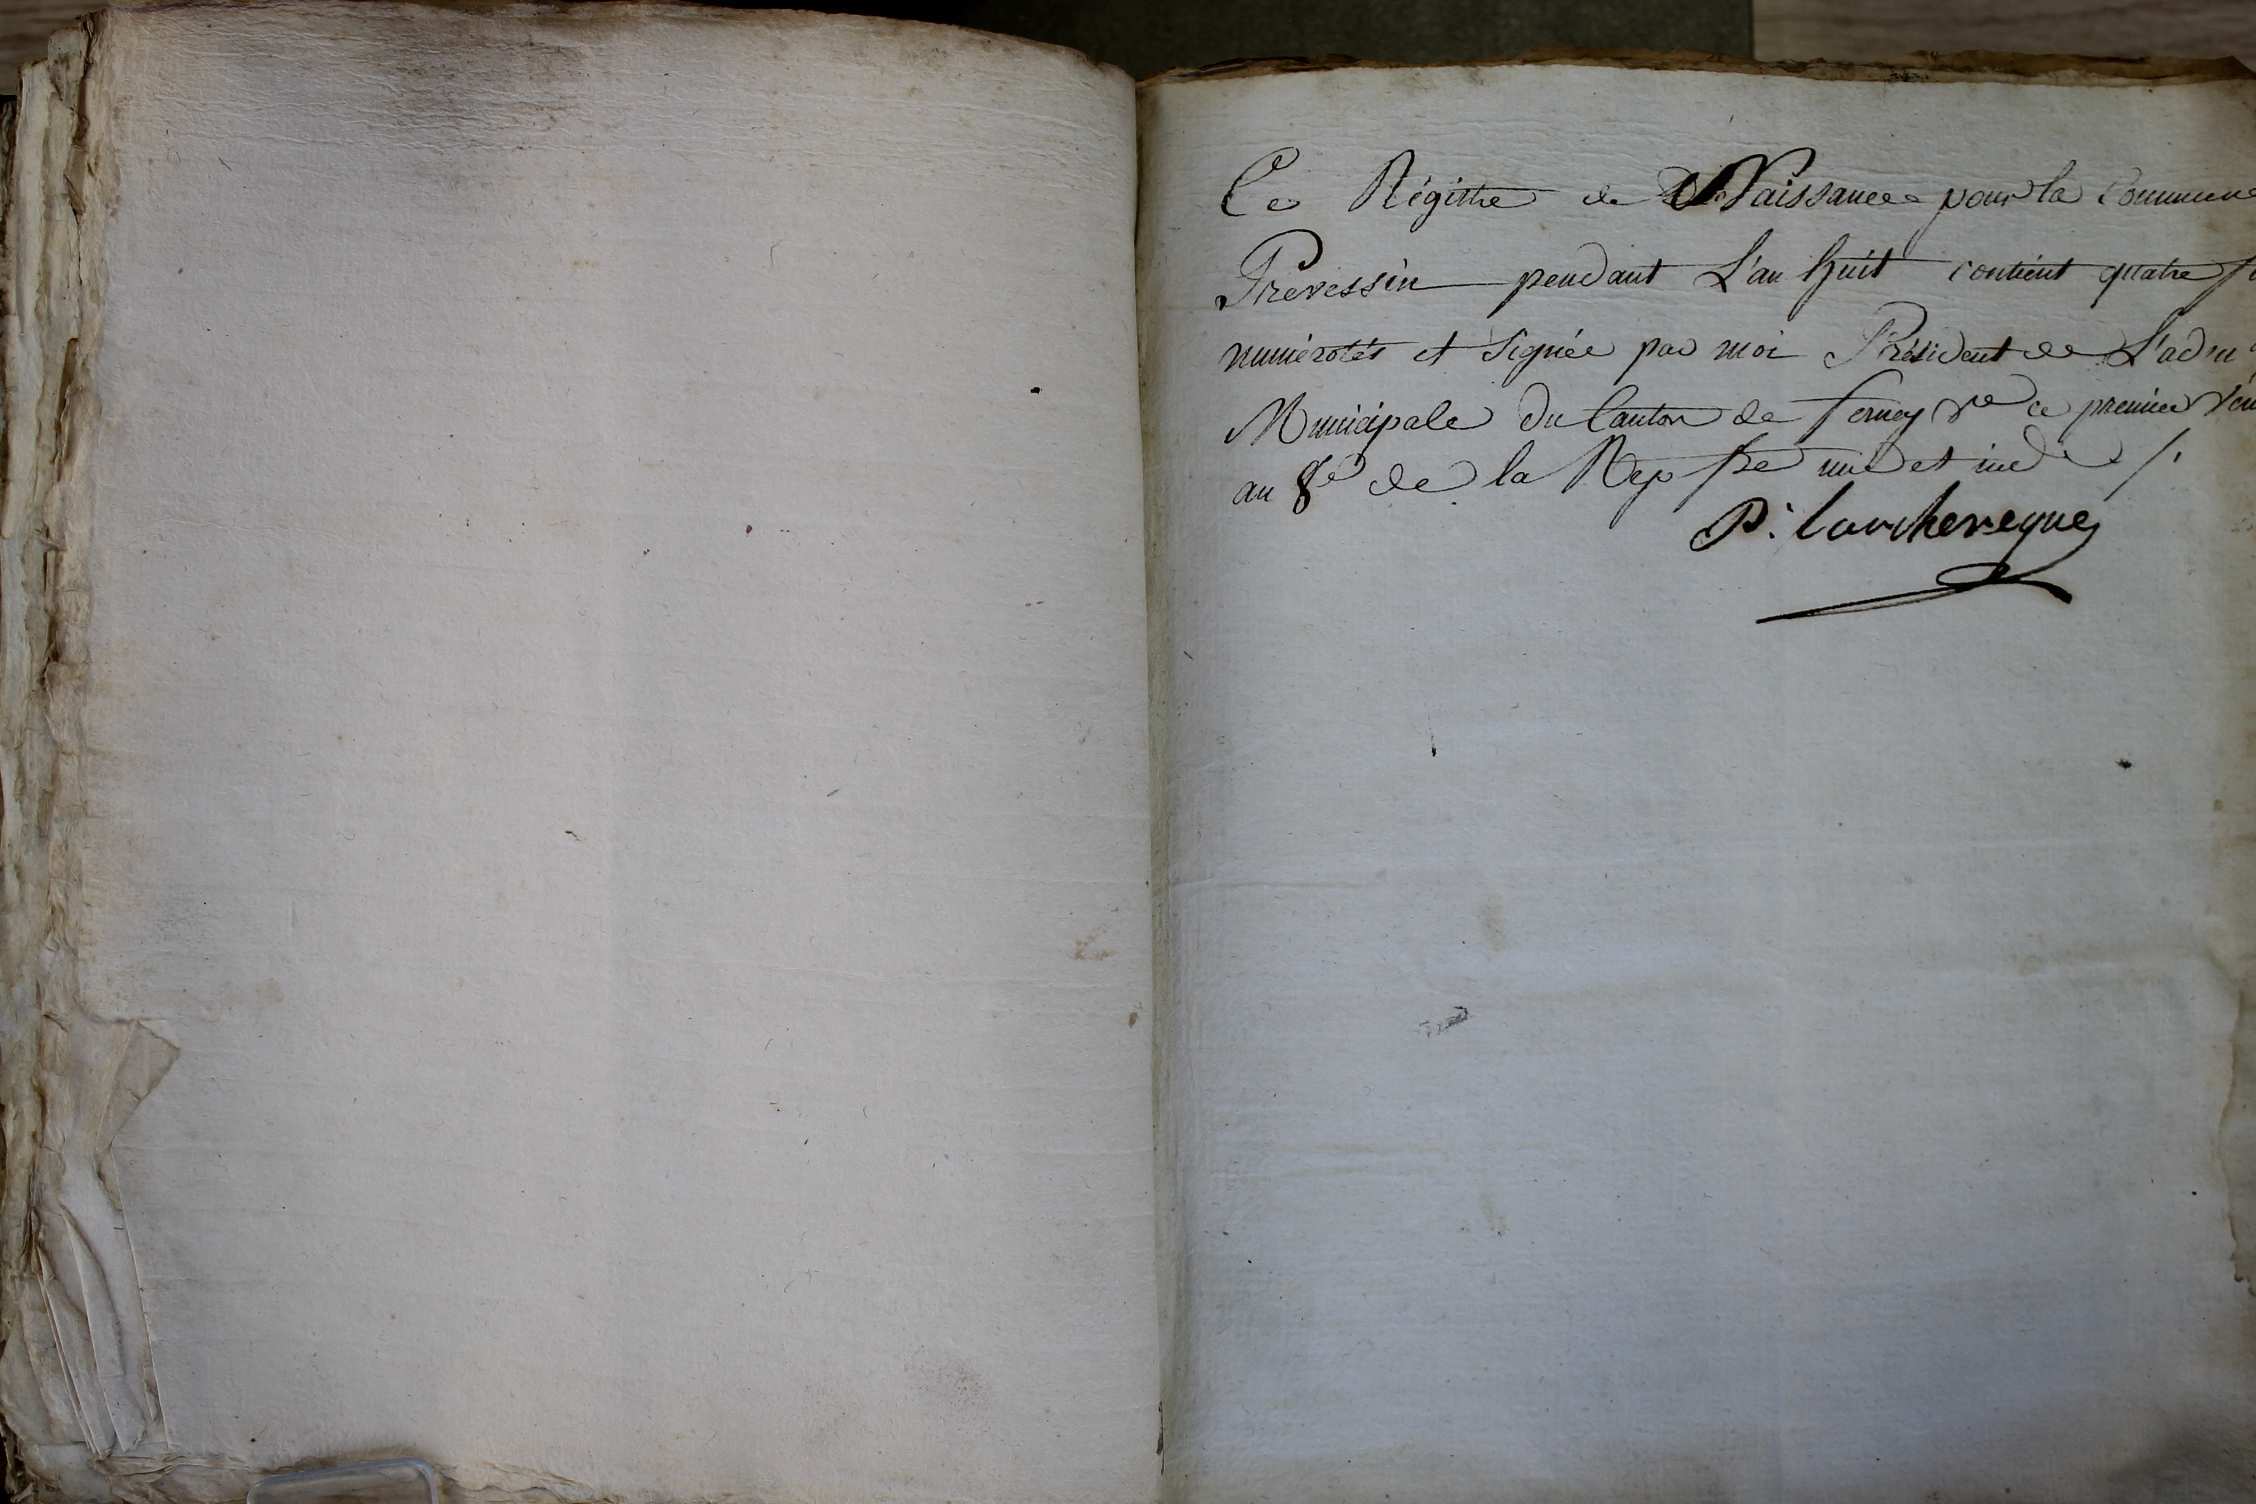 Ce Régistre de Naissance pour la Commune
Prevessin pendant L'an huit contient quatre
numérotés et signée par moi Président de L'adm
Municipale du Canton de ferney Vre ce premier Vén
an 8e de la Rep fse une et ind
P. Larcheveque